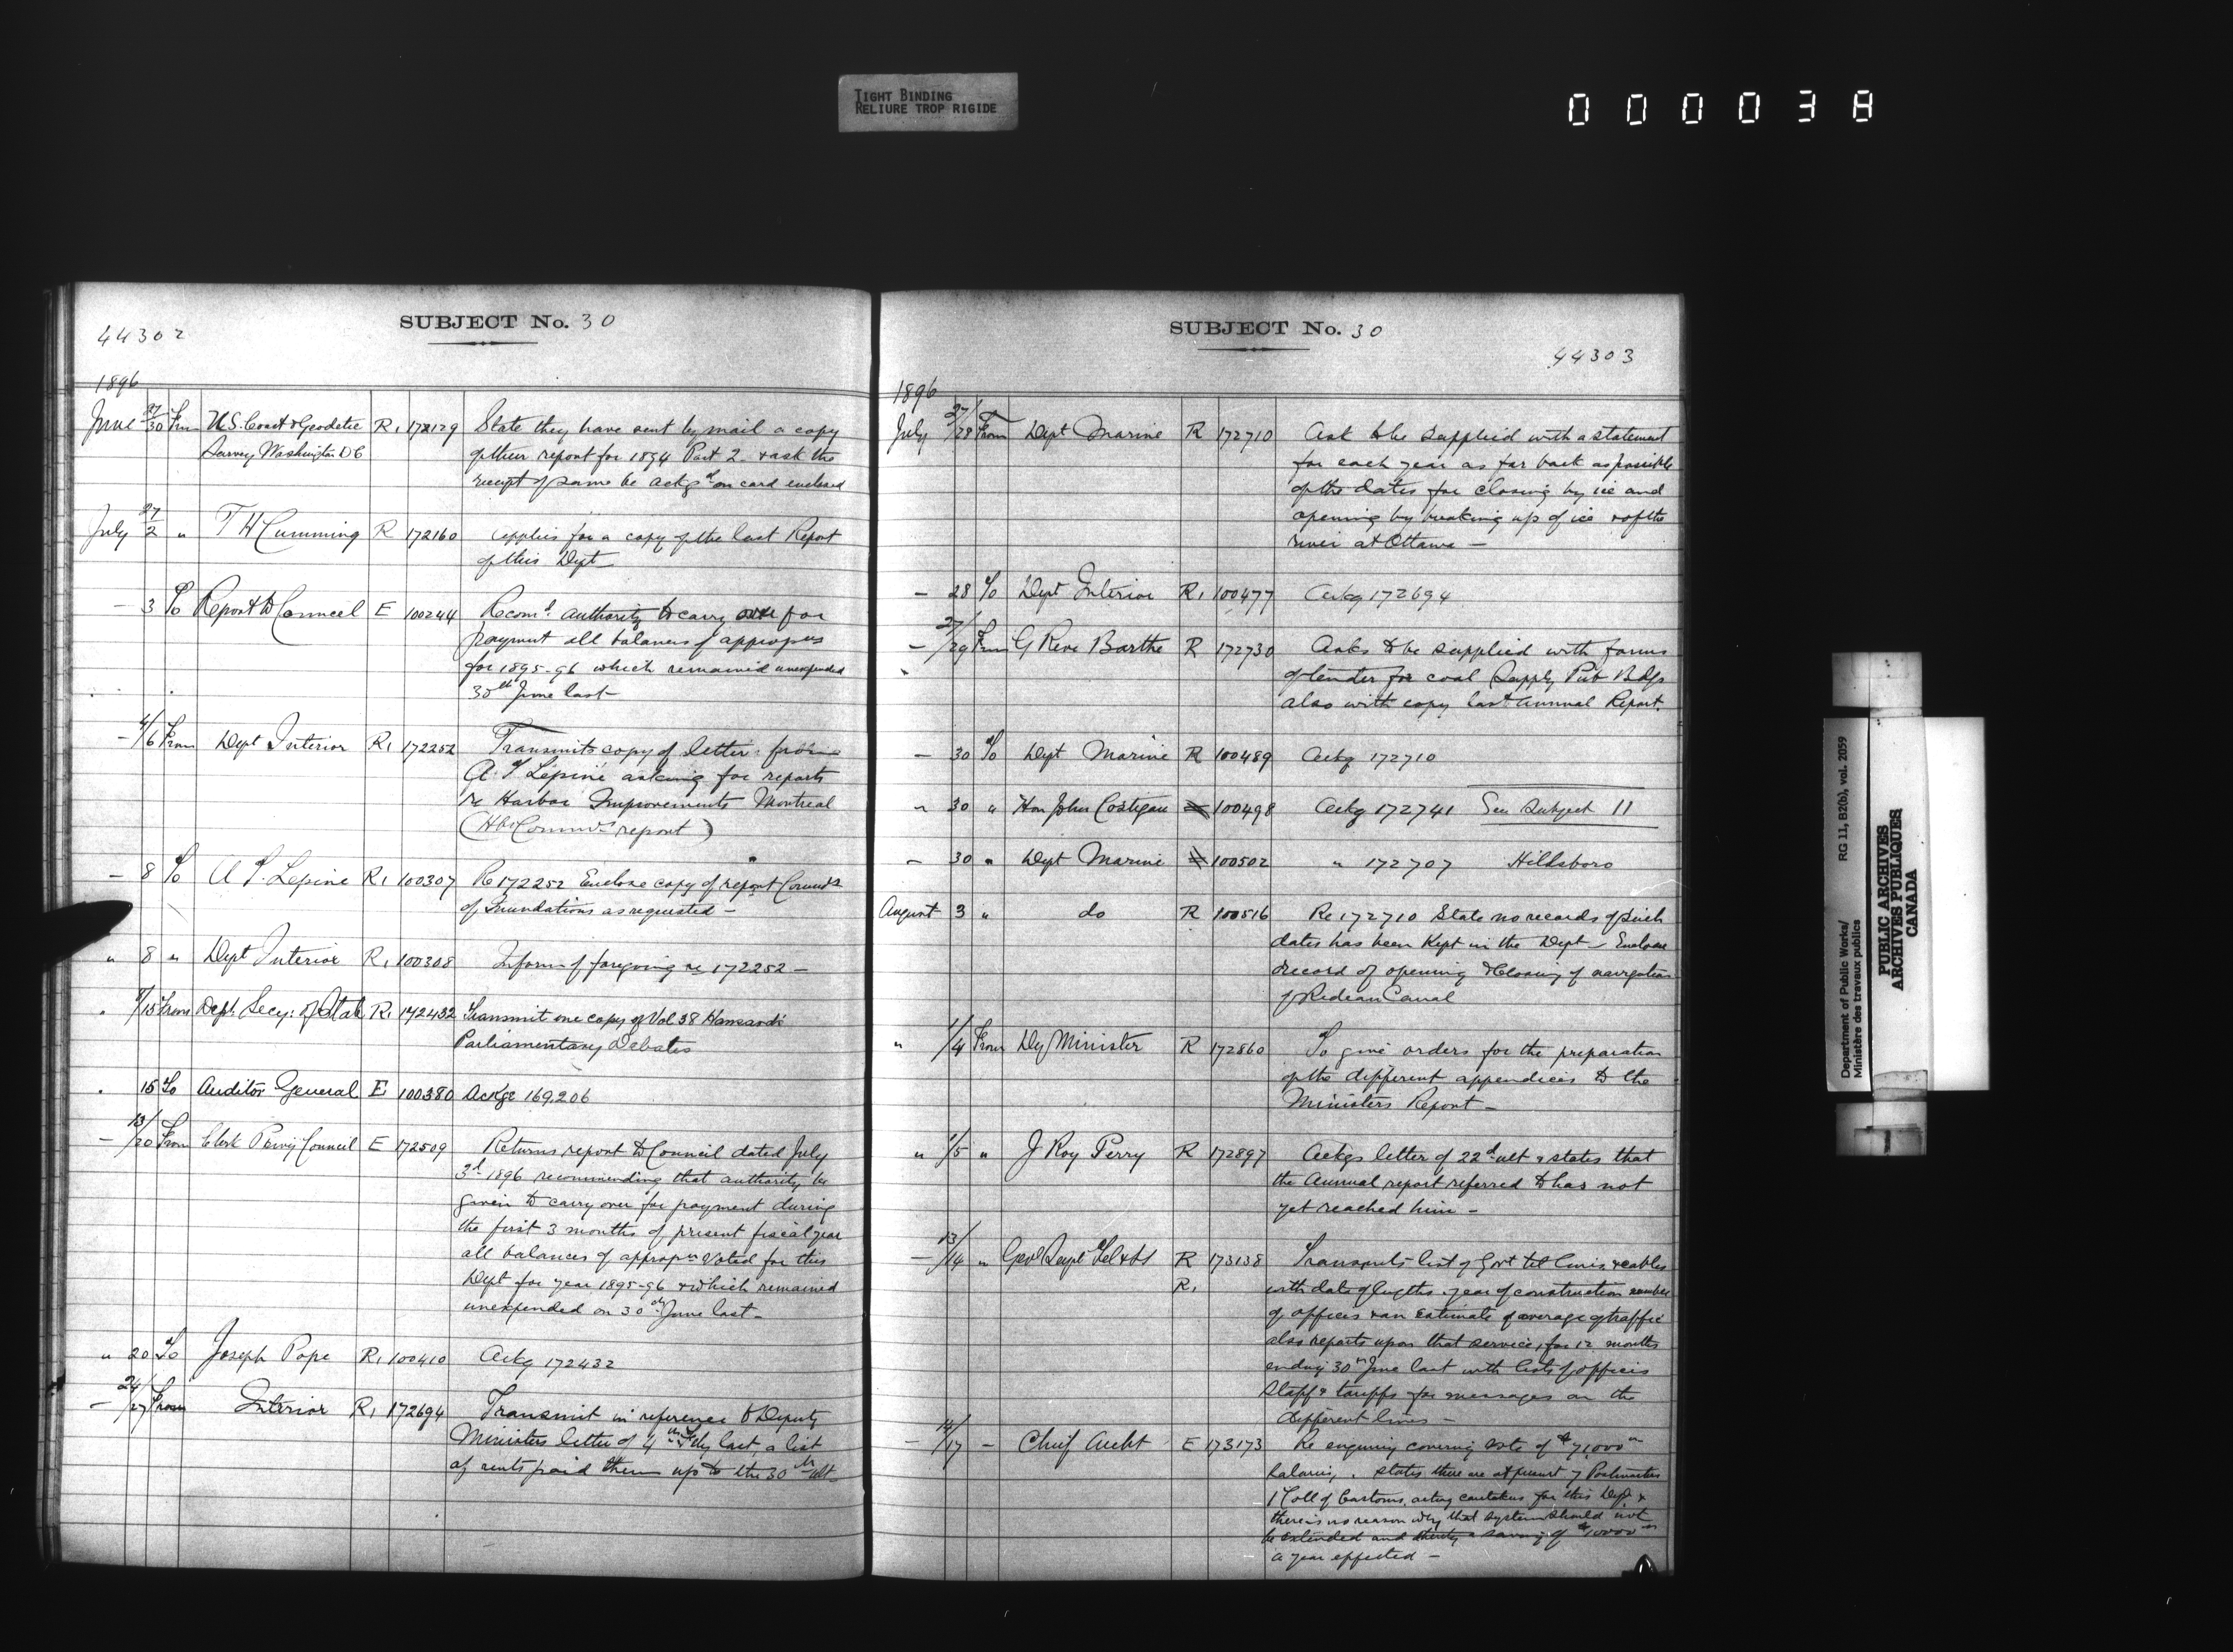 TIGHT BINDING
RELIURE TROP RIGIDE
000038
44302
SUBJECT No. 30
1896
June 27/30 From U.S. Coast & Geodetic R, 172129 State they have sent by mail a copy
Survey Washington DC of their report for 1894 Part 2 & ask the
receipt of same be ackgd on card enclosed
July 27/2 " T H Cumming R 172160 applies for a copy of the last Report
of this Dept
— 3 To Report to Council E 100244 Recomd. authority to carry over for
payment all balances of appropns
for 1895-96 which remained unexpended
30th June last
— 4/6 From Dept Interior R, 172252 Transmits copy of letter from
A. T Lépine asking for reports
re Harbor Improvements Montreal
(Hbr Commrs report)
— 8 To A. T. Lepine R, 100307 Re 172252 Enclose copy of report Commrs
of Inundations as requested —
" 8 " Dept Interior R, 100308 Inform of foregoing re 172252 —
" /15 From Dept. Secy: of State R, 172432 Transmit one copy of Vol 38 Hansards
Parliamentary Debates
" 15 To Auditor General E 100380 Ackge 169.206
— 13/20 From Clerk Privy Council E 172509 Returns report to Council dated July
3d 1896 recommending that authority be
given to carry over for payment during
the first 3 months of present fiscal year
all balances of appropns voted for this
Dept for year 1895-96 & which remained
unexpended on 30th June last —
" 20 To Joseph Pope R, 100410 Ackg 172432
— 24/27 From Interior R, 172694 Transmit in reference to Deputy
Ministers letter of 4th last, a list
of rents paid them up to the 30th ult—
SUBJECT No. 30
44303
1896
July 27/28 From Dept Marine R 172710 Ask to be supplied with a statement
for each year as far back as possible
of the dates for closing by ice and
opening by breaking up of ice & of the
river at Ottawa —
— 28 To Dept Interior R, 100477 Ackg 172694
— 27/29 From G Rene Barthe R 172730 Asks to be supplied with forms
of tender for coal Supply Pub Bdgs
also with copy last annual Report.
— 30 To Dept Marine R 100489 Ackg 172710
" 30 " Hon John Costigan 100498 Ackg 172741 See Subject 11
— 30 " Dept Marine 100502 " 172707 Hillsboro
August 3 " do R 100516 Re 172710 State no records of such
dates has been kept in the Dept — Enclose
record of opening & closing of navigation
of Rideau Canal
" 1/4 From Dy Minister R 172860 To give orders for the preparation
of the different appendices to the
Ministers Report —
" 1/5 " J Roy Perry R 172897 Ackgs letter of 22d ult & states that
the Annual report referred to has not
yet reached him —
— 13/14 " Genl Supt Tel R 173138 Transmits list of Govt tel lines & cables
R, with date of lengths year of construction number
of offices & an estimate of average of traffic
also reports upon that service, for 12 months
ending 30th June last with lists of offices
staff & tariffs for messages on the
different lines —
— 14/17 — Chief Archt E 173173 Re enquiry covering vote of $71,000
Salaries. states there are at present 7 Postmasters
1 Coll of Customs, acting caretakers for this Dept &
there is no reason why that system should not
be extended and thereby a saving of $10000
a year effected —
Department of Public Works/
Ministère des travaux publics
RG 11, B2(b), vol. 2059
PUBLIC ARCHIVES
ARCHIVES PUBLIQUES
CANADA